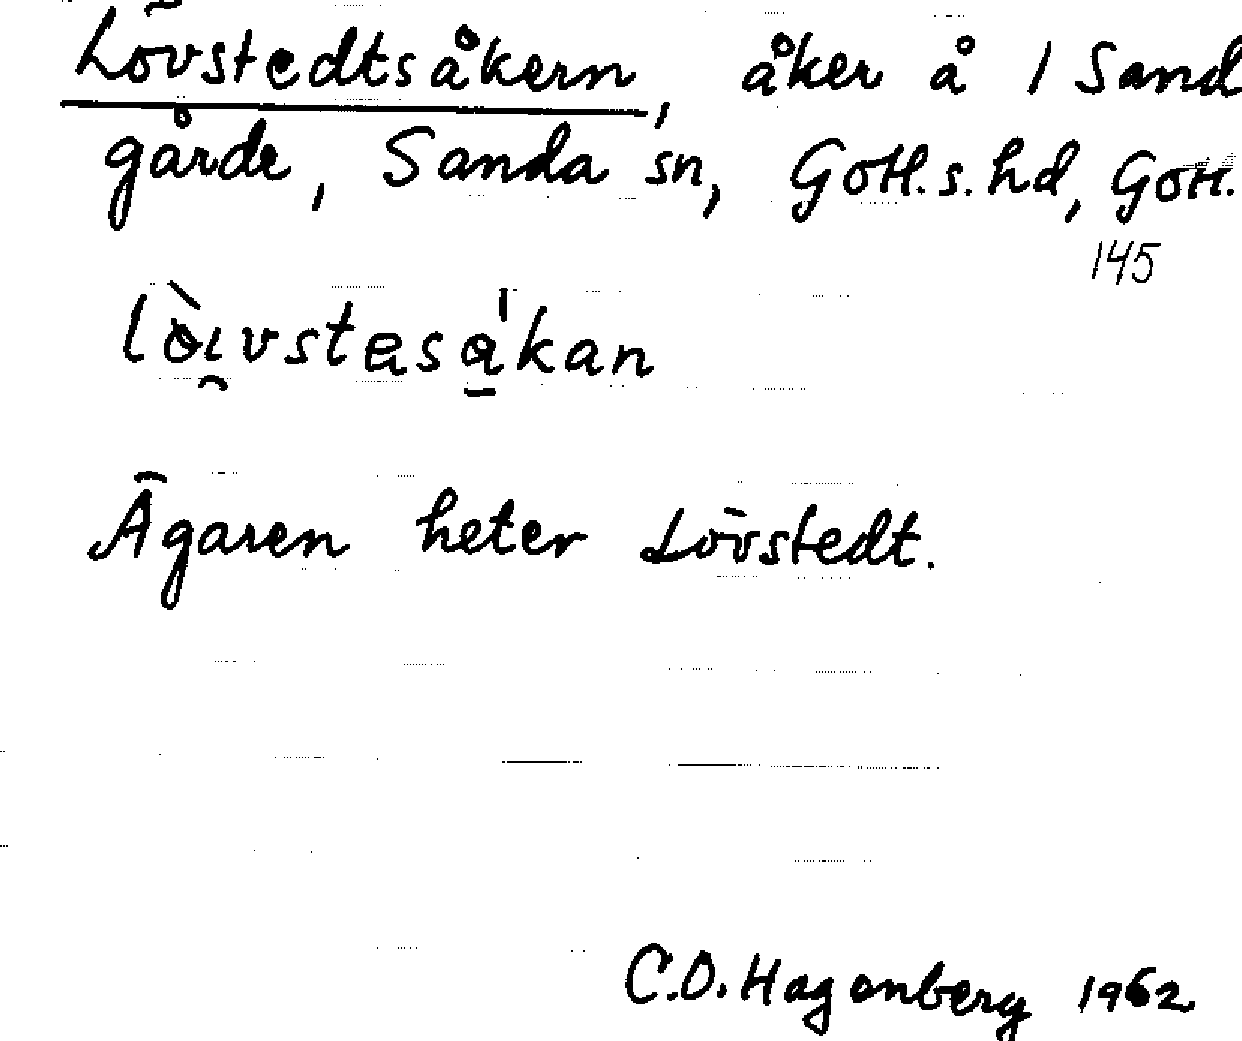 Lövstedtsåkern, åker å 1 Sand
gårde, Sanda sn, Gotl. s. hd, Gotl.
145
Ägaren heter Lövstedt.
C.O. Hagenberg 1962